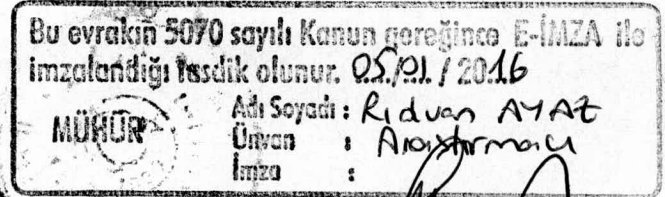 Bu evrakın 5070 sayılı Kanun gereğince E-İMZA ile
imzalandığı tasdik olunur. 05/01/2016
MÜHÜR
Adı Soyadı : Rıdvan AYAZ
Ünvan : Araştırmacı
İmza :